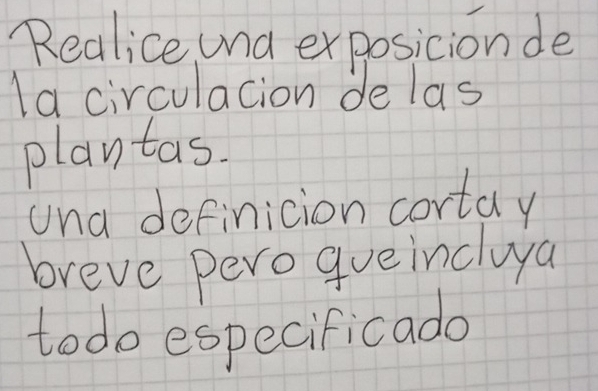 Realice una exposición de
la circulacion de las
plantas.
una definicion corta y
breve pero que incluya
todo especificado